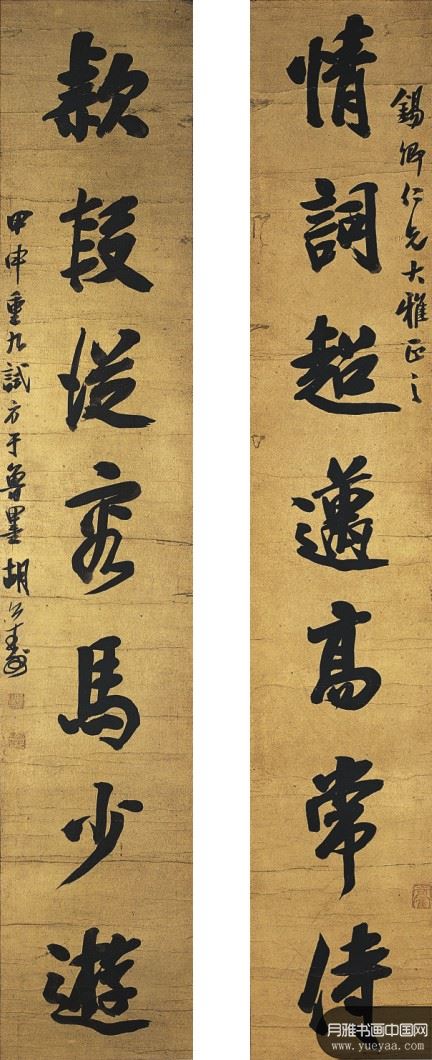 錫卿仁兄大雅正之
情詞超邁高常侍
款段從容馬少遊
甲申重九試方于魯墨胡公壽
月雅书画中国网
www.yueyaa.com